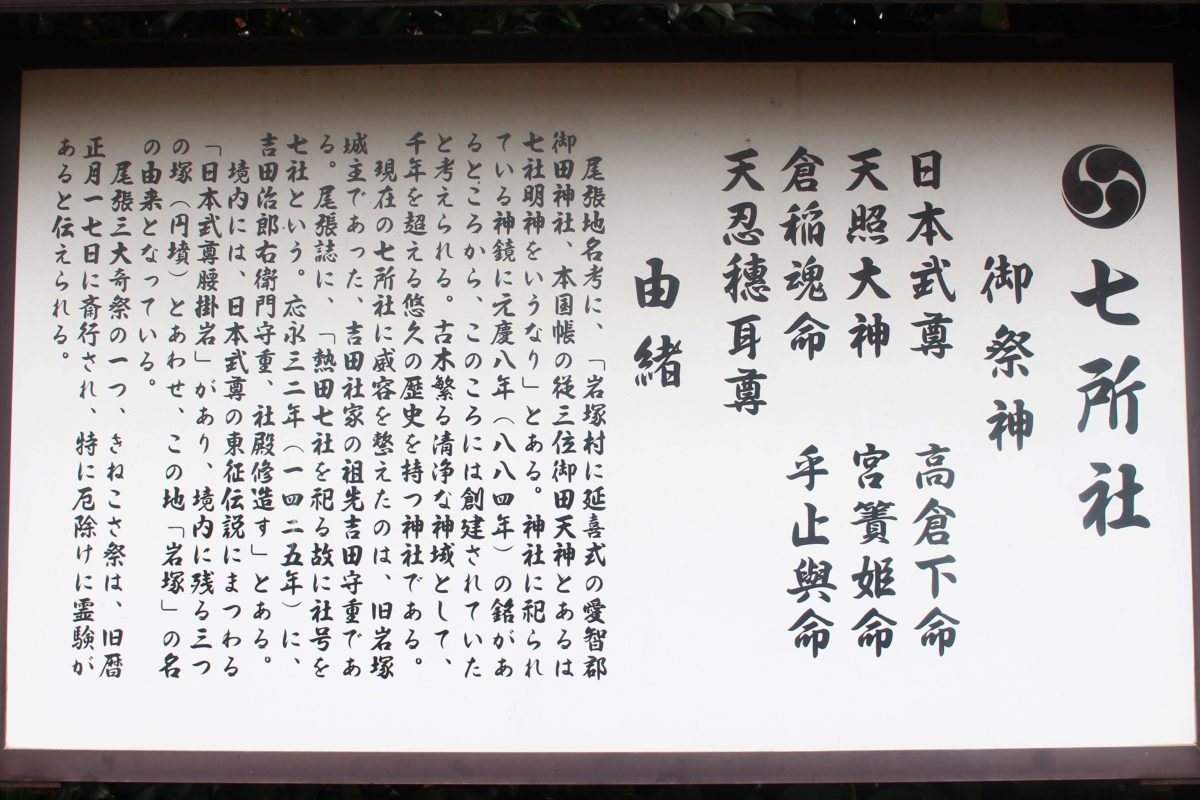 七所社
御祭神
日本武尊　高倉下命
天照大神　宮簀姫命
倉稲魂命　乎止與命
天忍穂耳尊
由緒
尾張地名考に、「岩塚村に延喜式の愛智郡
御田神社、本国帳の従三位御田天神とあるは
七社明神をいうなり」とある。神社に祀られ
ている神鏡に元慶八年（八八四年）の銘があ
るところから、このころには創建されていた
と考えられる。古木繁る清浄な神域として、
千年を超える悠久の歴史を持つ神社である。
現在の七所社に威容を整えたのは、旧岩塚
城主であった、吉田社家の祖先吉田守重であ
る。尾張誌に、「熱田七社を祀る故に社号を
七社という。応永三二年（一四二五年）に、
吉田治郎右衛門守重、社殿修造す」とある。
境内には、日本武尊の東征伝説にまつわる
「日本武尊腰掛岩」があり、境内に残る三つ
の塚（円墳）とあわせ、この地「岩塚」の名
の由来となっている。
尾張三大奇祭の一つ、きねこさ祭は、旧暦
正月一七日に斎行され、特に厄除けに霊験が
あると伝えられる。